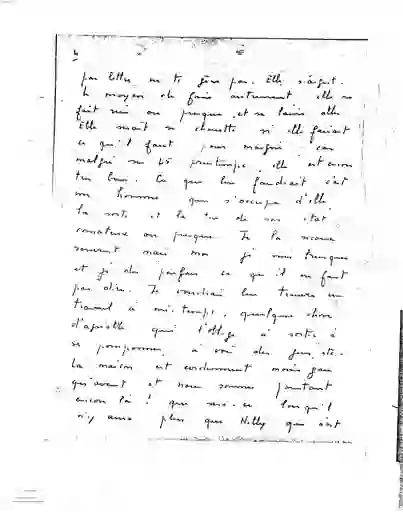 4
par lettre ne te gêne pas. Elle s'aigrit.
le moyen de faire autrement elle ne
fait rien ou presque et se laisse aller
Elle serait si chouette si elle faisait
ce qu'il faut pour maigrir car
malgré ses 45 printemps, elle est encore
très bien. Ce que lui faudrait c'est
un homme qui s'occupe d'elle
la sorte et la tire de son état
comateux ou presque. Je la secoue
souvent mais moi je suis
et je dis parfois ce qu'il ne faut
pas dire. Je voudrais lui trouver un
travail à mi-temps, quelque chose
d'agréable qui l'oblige à sortir à
se pomponner, à voir des gens, etc.
La maison est évidemment moins gaie
qu'avant et nous sommes pourtant
encore là ! que sera-ce lorsqu'il
n'y aura plus que Nelly qui est